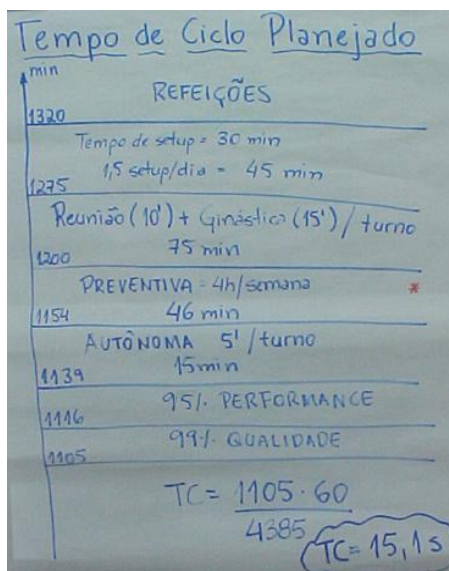 Tempo de Ciclo Planejado
min
REFEIÇÕES
1320
Tempo de setup = 30 min
1,5 setup/dia = 45 min
1275
Reunião (10') + Ginástica (15') / turno
75 min
1200
PREVENTIVA = 4h/semana *
46 min
1154
AUTÔNOMA 5' /turno
15min
1139
95%. PERFORMANCE
1116
99%. QUALIDADE
1105
TC = 1105 . 60
4385
TC= 15,1s